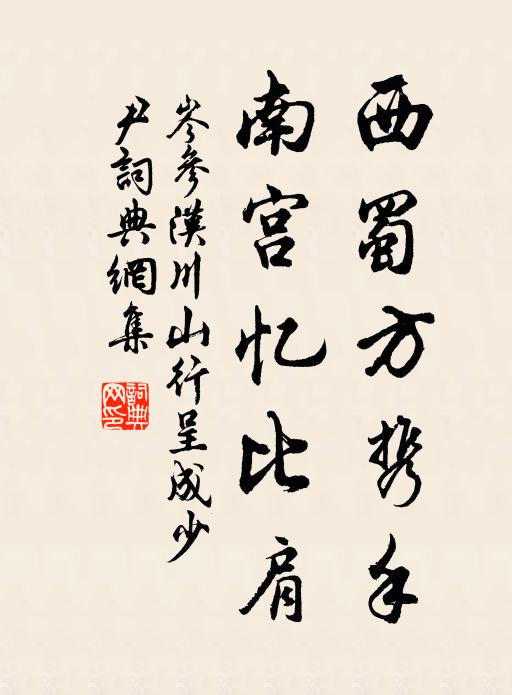 西蜀方携手
南宫忆比肩
岑参漢川山行呈成少
尹詞典網集
詞典网印